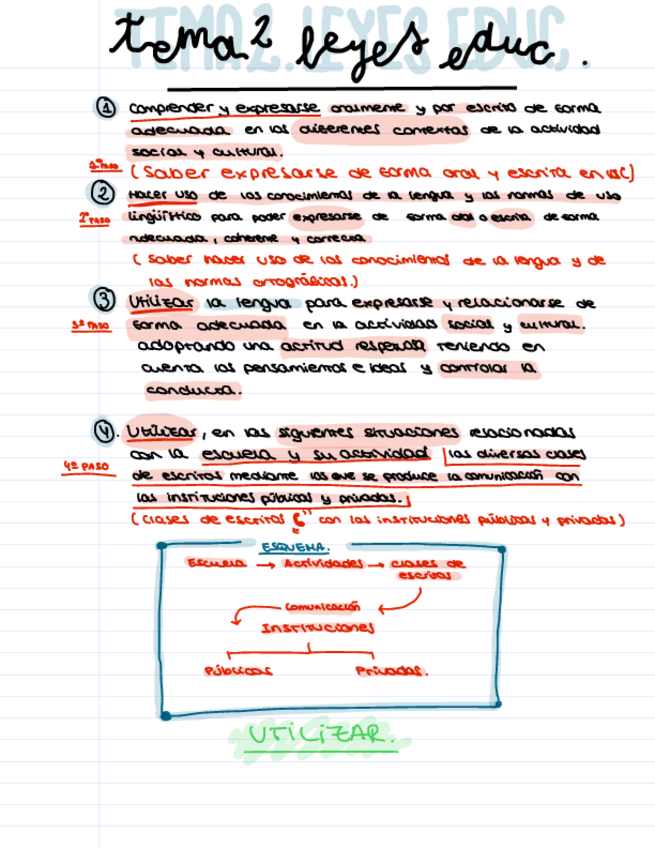 TEMA 2. LEYES EDUC.
tema 2 leyes educ.
① comprender y expresarse oralmente y por escrito de forma
adecuada en los diferentes contextos de la actividad
social y cultural.
1º PASO (Saber expresarse de forma oral y escrita en
② Hacer uso de los conocimientos de la lengua y las normas de uso
2º PASO lingüístico para poder expresarse de forma oral o escrita de forma
adecuada, coherente y correcta
(saber hacer uso de los conocimientos de la lengua y de
las normas ortográficas.)
③ Utilizar la lengua para expresarse y relacionarse de
3º PASO forma adecuada en la actividad social y cultural.
adoptando una actitud respetada teniendo en
cuenta los pensamientos e ideas y controlar la
conducta.
④. Utilizar, en las siguientes situaciones relacionadas
con la escuela y su actividad las diversas clases
4º PASO de escritos mediante los que se produce la comunicación con
las instituciones públicas y privadas.
(clases de escritos con las instituciones públicas y privadas)
ESQUEMA.
Escuela → Actividades → clases de
escritos
comunicación
Instituciones
Públicas Privadas.
UTILIZAR.